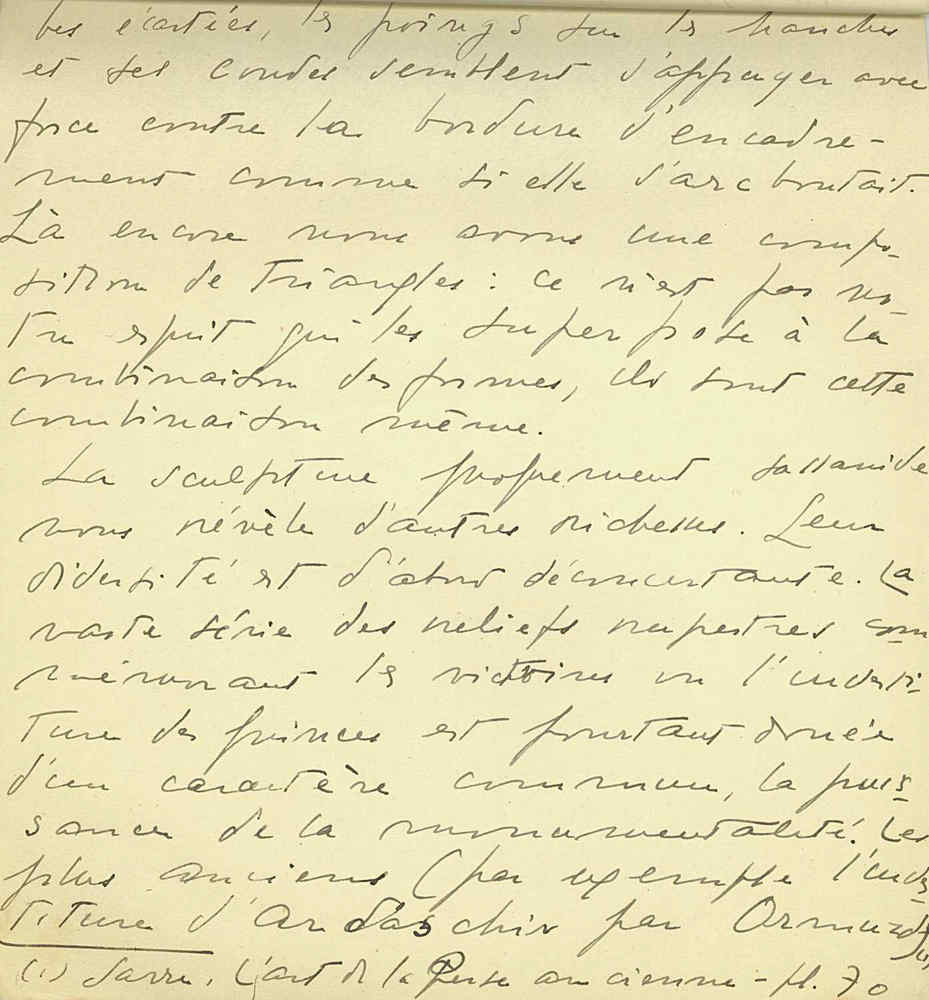 bes écartées, les poings sur les hanches
et ses coudes semblent s'appuyer avec
force contre la bordure d'encadre-
ment comme si elle s'arcboutait.
Là encore nous avons une compo-
sition de triangles : ce n'est pas no-
tre esprit qui les superpose à la
combinaison des formes, ils sont cette
combinaison même.
La sculpture proprement sassanide
nous révèle d'autres richesses. Leur
diversité est d'abord déconcertante. La
vaste série des reliefs rupestres com-
mémorant les victoires ou l'investi-
ture des princes est pourtant douée
d'un caractère commun, la puis-
sance de la monumentalité. Les
plus anciens (par exemple l'inves-
titure d'Ardaschir par Ormuzd (1)
(1) Sarre, L'art de la Perse ancienne - pl. 70